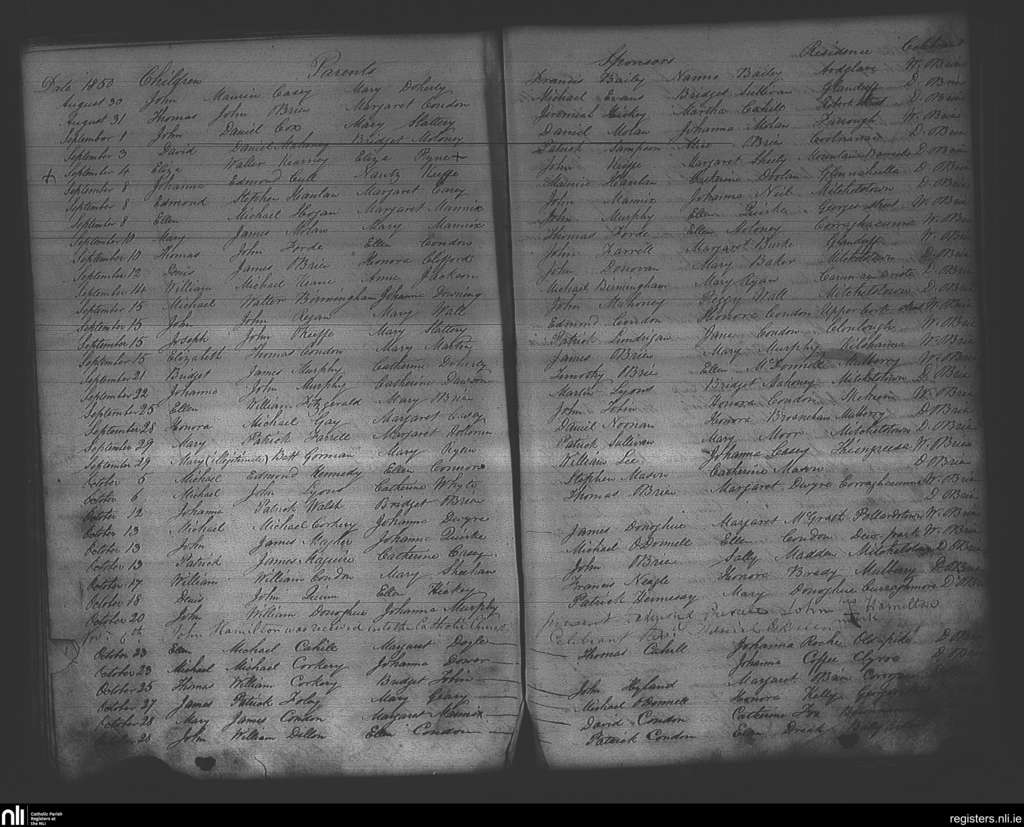 Date 1850 Children Parents Sponsors Residence Celebrant
August 30 John Maurice Casey Mary Doherty Francis Bailey Nanno Bailey Ardglare W. Brien
August 31 Thomas John Brien Margaret Condon Michael Evans Bridget Sullivan Glanduff D Brien
September 1 John Daniel Cox Mary Slattery Jeremiah Hickey Martha Cahill Robert Street D. OBrien
September 3 David Daniel Mahony Bridget Moloney Daniel Molan Johanna Molan Furrough W. OBrien
+ September 4 Eliza Walter Kearney Eliza Ryne + Patrick Sampson Alice Brien D. OBrien
September 8 Johanna Edmond Cull Nancy Keeffe John Keeffe Margaret Sheely Mountain Barracks D OBrien
September 8 Edmond Stephen Hanlan Margaret Carey Maurice Hanlan Catherine Doolan D. OBrien
September 8 Ellen Michael Hogan Margaret Mannix John Mannix Johanna Neil Mitchelstown D OBrien
September 10 Mary James Molan Mary Mannix John Murphy Ellen Quirke Georges Street W. OBrien
September 10 Thomas John Forde Ellen Condon Thomas Forde Ellen Moloney Corraghcunna W. OBrien
September 12 Denis James OBrien Honora Clifford John Farrell Margaret Burke Glanduff W. OBrien
September 14 William Michael Keane Anne Jackson John Donovan Mary Baker Mitchelstown D. OBrien
September 15 Michael Walter Birmingham Johanna Downing Michael Birmingham Mary Ryan D. OBrien
September 15 John John Regan Mary Wall John Mahoney Peggy Wall Mitchelstown D OBrien
September 15 Joseph John OKeeffe Mary Slattery Edmond Condon Honora Condon Upper Cork Street W. OBrien
September 15 Elizabeth Thomas Condon Mary Martin Patrick Londrigan Jane Condon Clonlough W. OBrien
September 21 Bridget James Murphy Catherine Doherty James OBrien Mary Murphy Kilshanna W. OBrien
September 22 Johanna John Murphy Catherine Dawson Timothy OBrien Ellen McDonnell Mulberry W. OBrien
September 25 Ellen William Fitzgerald Mary Brien Martin Lyons Bridget Mahoney Mitchelstown D. OBrien
September 28 Honora Michael Gay Margaret Casey John Tobin Honora Condon Skeheen W. OBrien
September 29 Mary Patrick Farrell Margaret Daniel Noonan Honora Branahan Mulberry D OBrien
September 29 Mary (illegitimate) Batt Gorman Mary Ryan Patrick Sullivan Mary Moore Mitchelstown D. OBrien
October 5 Michael Edmond Kennedy Ellen Connors William Lee Johanna Casey W. OBrien
October 6 Michael John Lyons Catherine Whyte Stephen Mason Catherine Mason D. OBrien
October 12 Johanna Patrick Walsh Bridget OBrien Thomas OBrien Margaret Dwyre Corraghcunna W. OBrien
October 13 Michael Michael Corkery Johanna Dwyre D. OBrien
October 13 John James Meagher Johanna Quirke James Donoghue Margaret McGrath Pollardstown W. OBrien
October 13 Patrick James Maguire Catherine Casey Michael ODonnell Ellen Condon Deer park W. OBrien
October 17 William William Condon Mary Sheehan John OBrien Sally Madden Mitchelstown D. OBrien
October 18 Denis John Quinn Ellen Hickey Francis Neagle Honora Brady Mulberry D. OBrien
October 20 John William Donoghue Johanna Murphy Patrick Hennessy Mary Donoghue Curraghmore D. OBrien
6th John Hamilton was received into the Catholic Church present John Hamilton
Celebrant
October 23 Ellen Michael Cahill Margaret Doyle Thomas Cahill Johanna Roche D OBrien
October 23 Michael Michael Corkery Johanna Dower Johanna Coffee Clyroe
October 25 Thomas William Corkery Budget Tobin John Hyland Margaret OBrien
October 27 James Patrick Foley Mary Geary Michael ODonnell Honora Kelly
October 28 Mary James Condon Margaret Mannix David Condon Catherine Fox
28 John William Dillon Ellen Condon Patrick Condon Ellen
nli Catholic Parish Registers at the NLI
registers.nli.ie